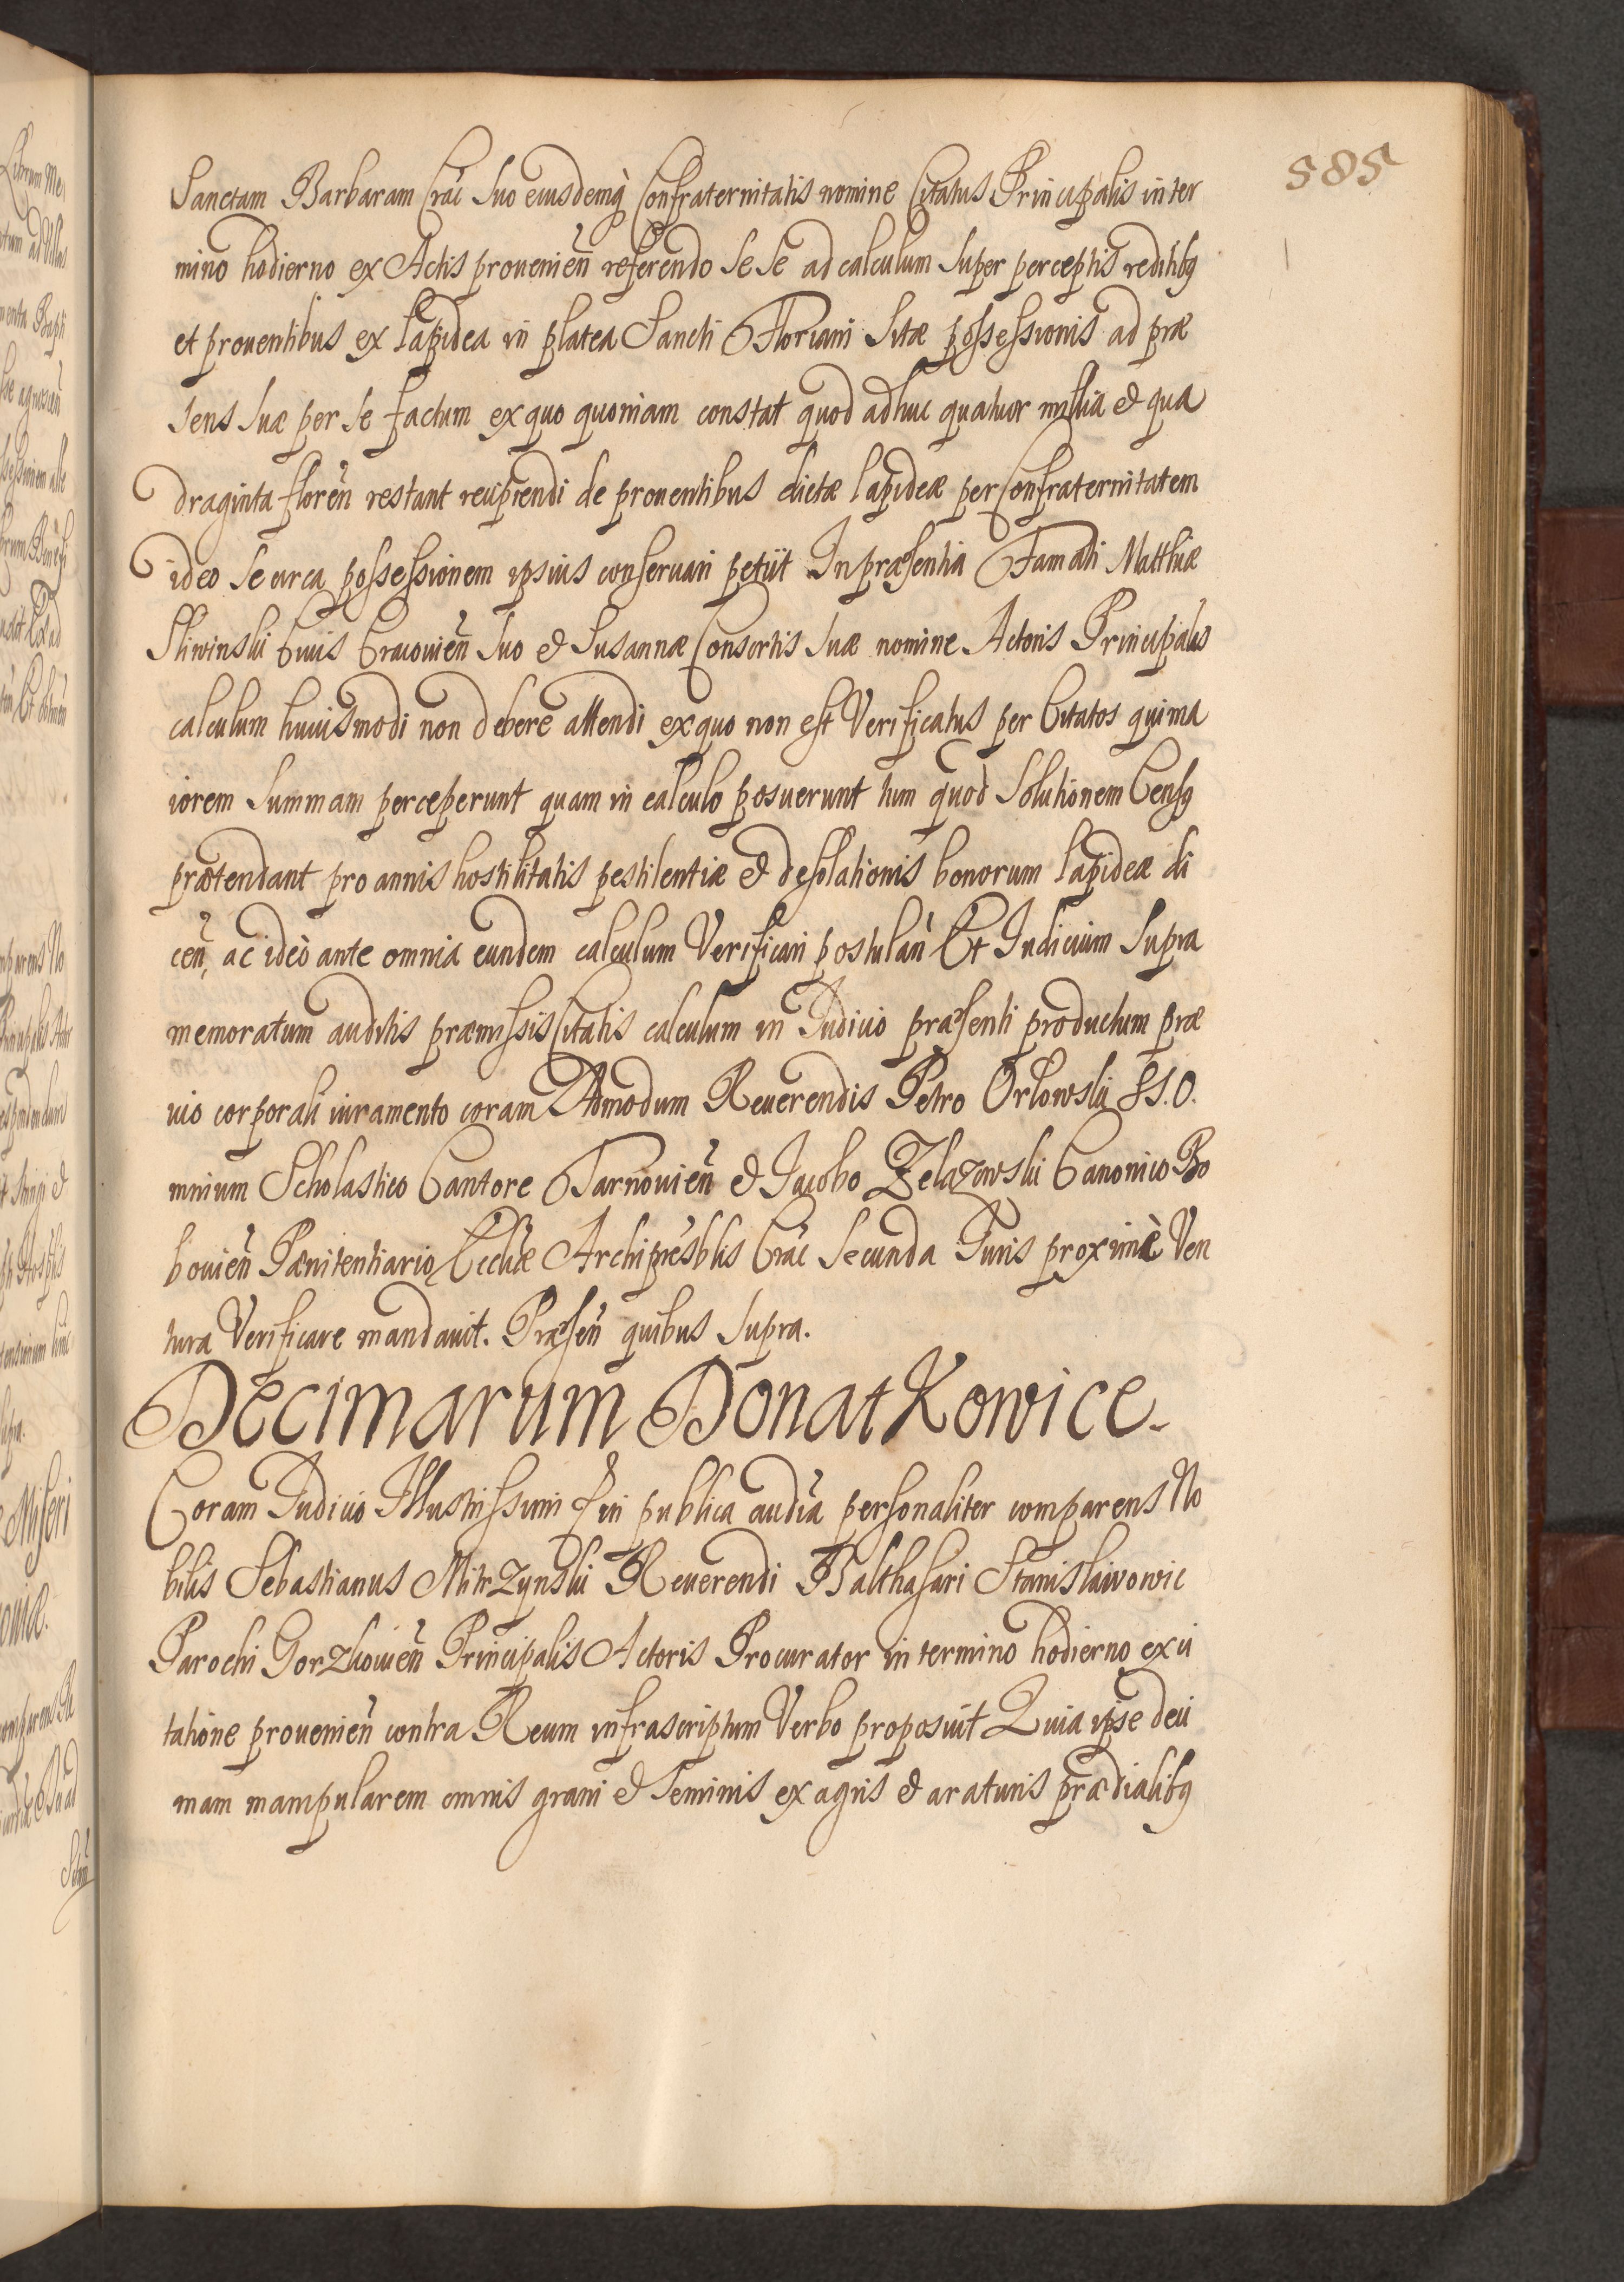 585
Sanctam Barbaram Crac̃ suo eiusdemq̀ Confraternitatis nomine Citatus Principalis in ter
mino hodierno ex Actis prouenień referendo se se ad calculum super perceptis reditibꝫ
et prouentibus ex lapidea in platea Sancti Floriani sitæ possessionis ad præ
sens suæ per se factum ex quo quoniam constat quod adhuc quatuor millia & qua
draginta floreń restant recipiendi de prouentibus dictæ lapideæ per Confraternitatem
ideo se circa possessionem ipsius conseruari petiit In præsentia Famati Matthiæ
Sliwinski Ciuis Cracouień suo & Susannæ Consortis suæ nomine Actoris Principalis
calculum huiusmodi non debere attendi ex quo non est Verificatus per Citatos qui ma
iorem summam perceperunt quam in calculo posuerunt tum quod solutionem Censꝫ
prætendant pro annis hostilitatis pestilentiæ & desolationis bonorum lapideæ di
ceń, ac ideò ante omnia eundem calculum Verificari postulań Et Iudicium supra
memoratum auditis præmissis Citatis calculum in Iudicio præsenti productum præ
uio corporali iuramento coram Admodum Reuerendis Petro Orlowski SS. O.
mnium Scholastico Cantore Tarnouień & Iacobo Zelazowski Canonico Bo
bouień Pænitentiario Eccliæ Archipresblis Crac̃ secunda Iuris proximè Ven
tura Verificare mandauit. Præseń quibus supra.
Decimarum Donatkowice.
Coram Iudicio Illustrissimi & in publica audia personaliter comparens No
bilis Sebastianus Mitrzynski Reuerendi Balthasari Stanislawowic
Parochi Gorzkouień Principalis Actoris Procurator in termino hodierno ex ci
tatione prouenień contra Reum infrascriptum Verbo proposuit Quia ipse deci
mam manipularem omnis grani & seminis ex agris & araturis prædialibꝫ